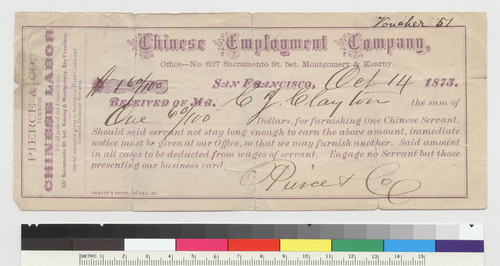 Voucher 51
Chinese Employment Company,
Office—No. 627 Sacramento St. bet. Montgomery & Kearny.
$ 1 60/100
San Francisco, Oct 14 1873.
Received of Mr. C J Clayton the sum of
One 60/100 Dollars, for furnishing One Chinese Servant.
Should said servant not stay long enough to earn the above amount, immediate
notice must be given at our Office, so that we may furnish another. Said amount
in all cases to be deducted from wages of servant. Engage no Servant but those
presenting our business card.
Pierce & Co
PIERCE & CO.
FURNISH
CHINESE LABOR
627 Sacramento St. bet. Kearny & Montgomery, San Francisco.
METRIC 1 2 3 4 5 6 7 8 9 10 11 12 13 14 15